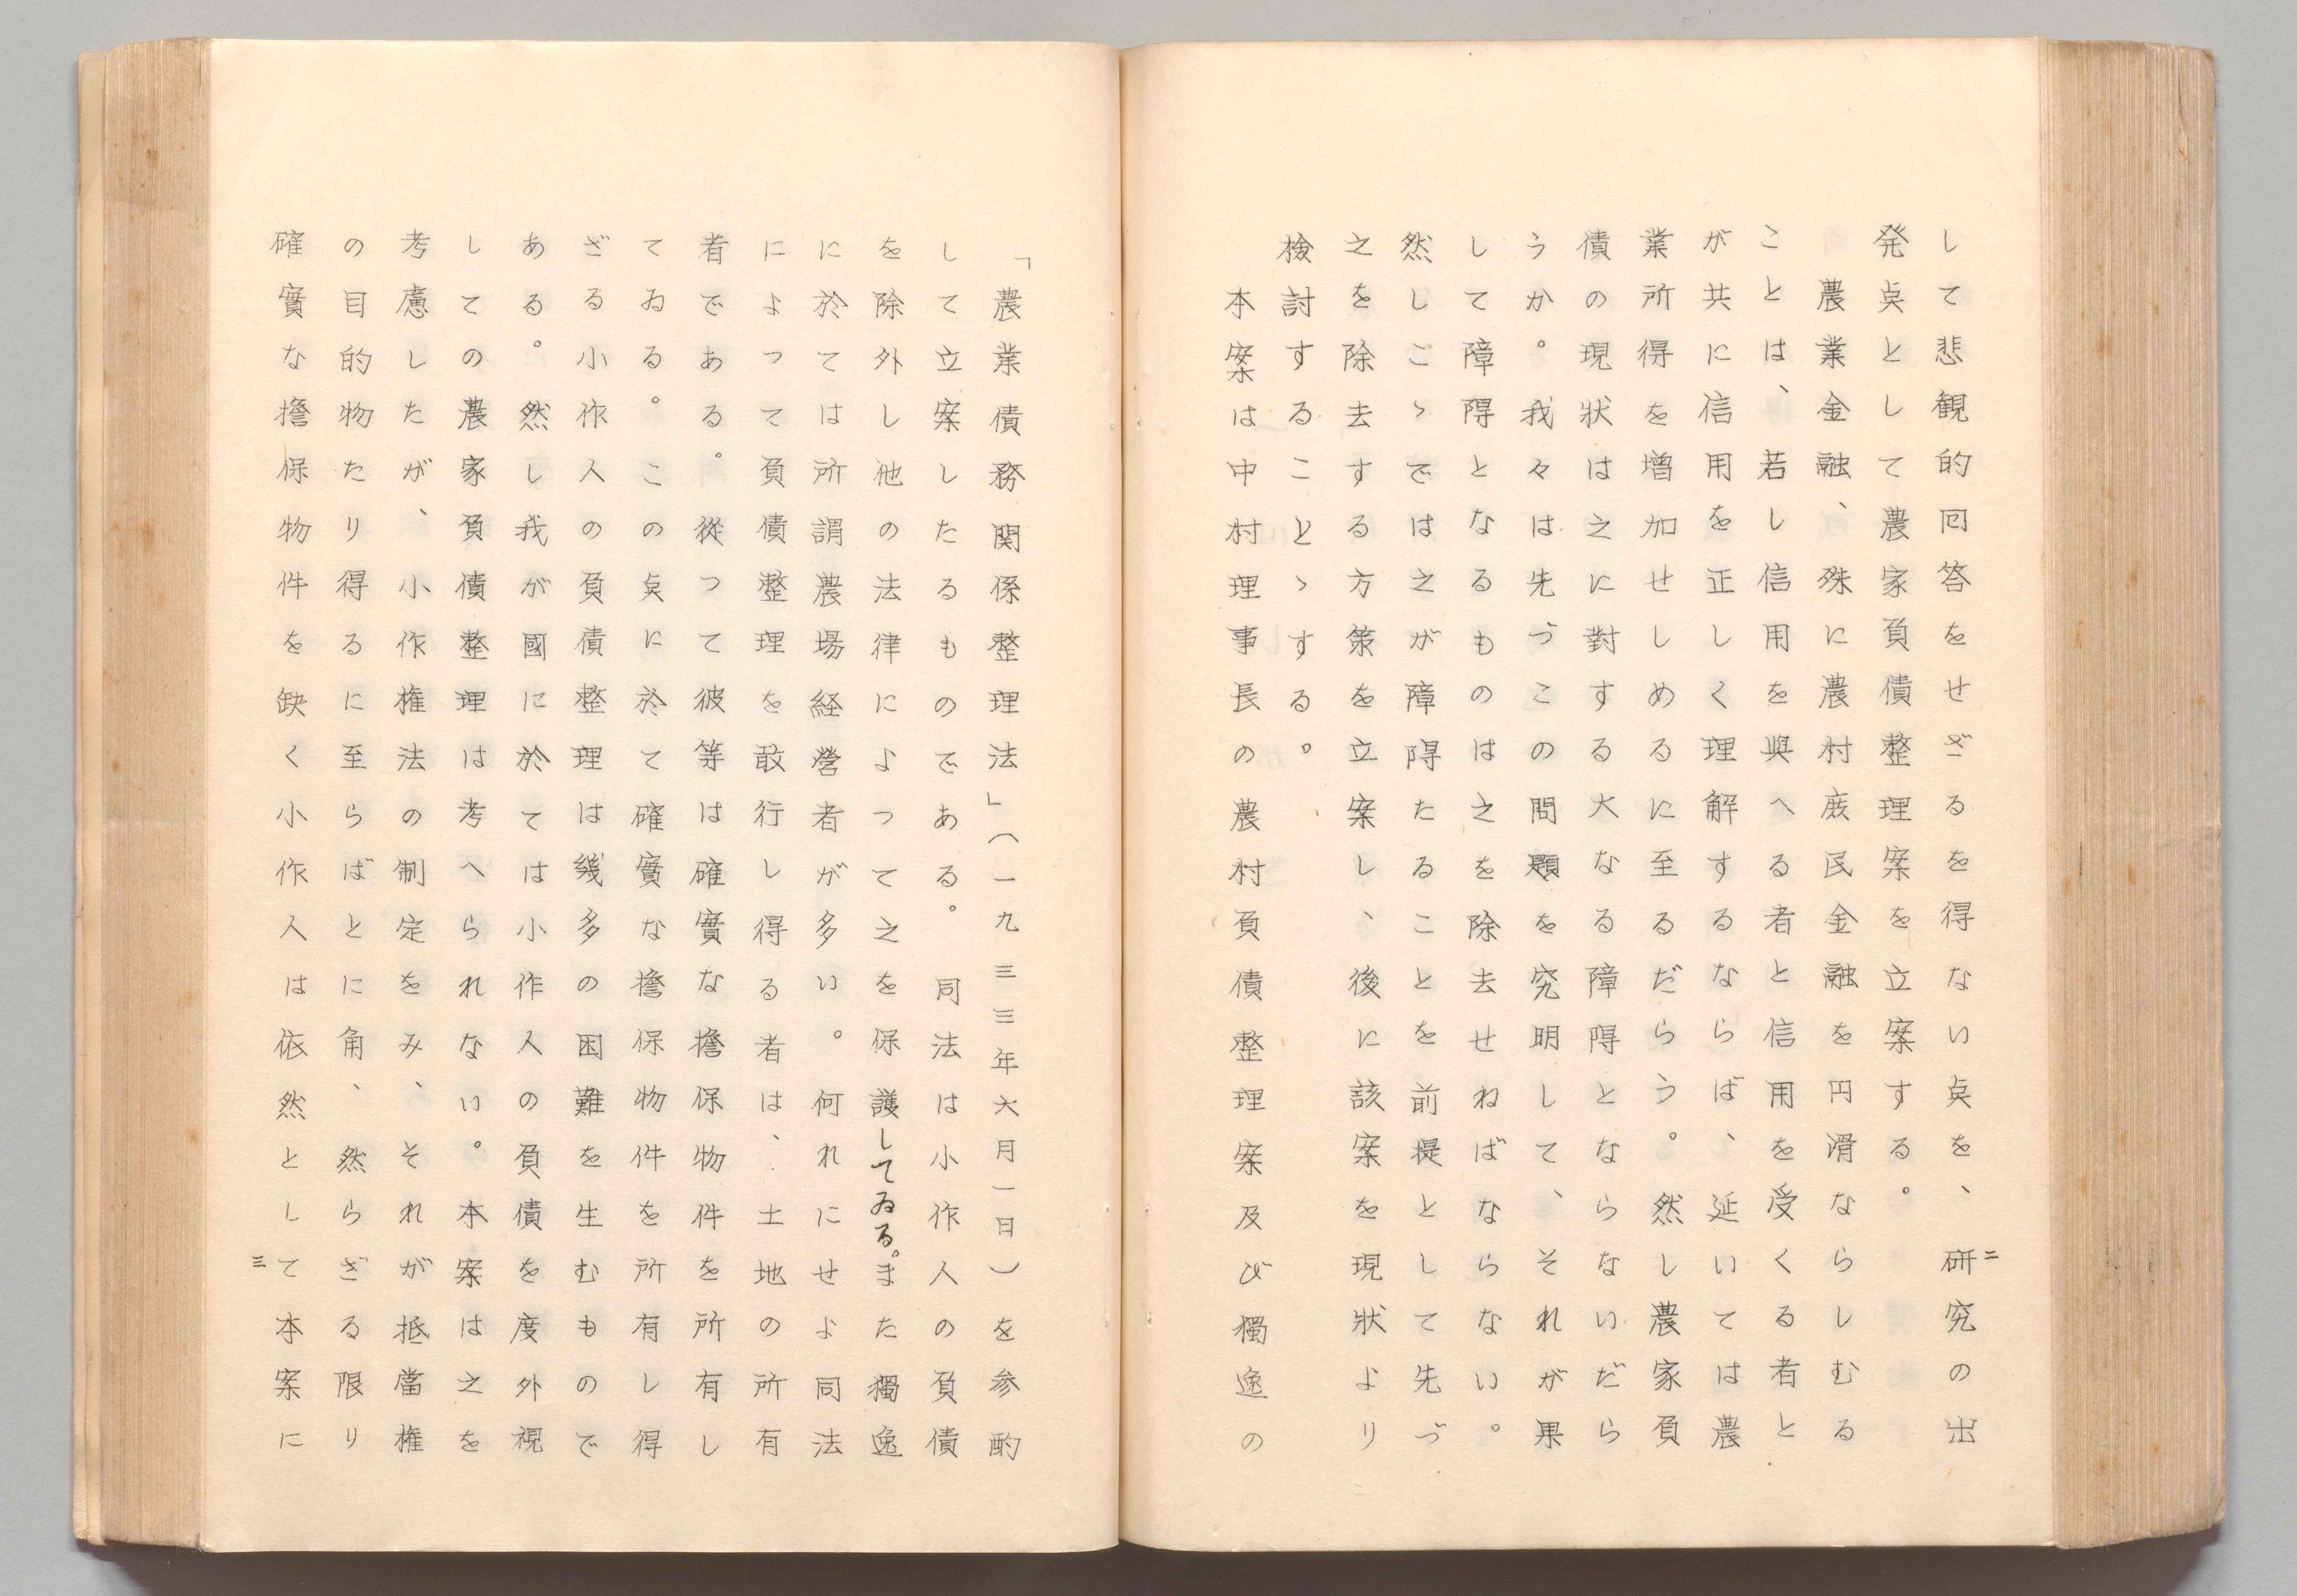 して悲観的回答をせざるを得ない点を、研究の出
発点として農家負債整理案を立案する。
農業金融、殊に農村庶民金融を円滑ならしむる
ことは、若し信用を與へる者と信用を受くる者と
が共に信用を正しく理解するならば、延いては農
業所得を増加せしめるに至るだらう。然し農家負
債の現狀は之に對する大なる障碍とならないだら
うか。我々は先づこの問題を究明して、それが果
して障碍となるものは之を除去せねばならない。
然しこゝでは之が障碍たることを前提として先づ
之を除去する方策を立案し、後に該案を現狀より
検討することゝする。
本案は中村理事長の農村負債整理案及び獨逸の
二
「農業債務関係整理法」(一九三三年六月一日)を参酌
して立案したるものである。同法は小作人の負債
を除外し他の法律によつて之を保護してゐる。また獨逸
に於ては所謂農場経營者が多い。何れにせよ同法
によって負債整理を敢行し得る者は、土地の所有
者である。從つて彼等は確實な擔保物件を所有し
てゐる。この点に於て確實な擔保物件を所有し得
ざる小作人の負債整理は幾多の困難を生むもので
ある。然し我が國に於ては小作人の負債を度外視
しての農家負債整理は考へられない。本案は之を
考慮したが、小作権法の制定をみ、それが抵當権
の目的物たり得るに至らばとに角、然らざる限り
確實な擔保物件を缺く小作人は依然として本案に
三